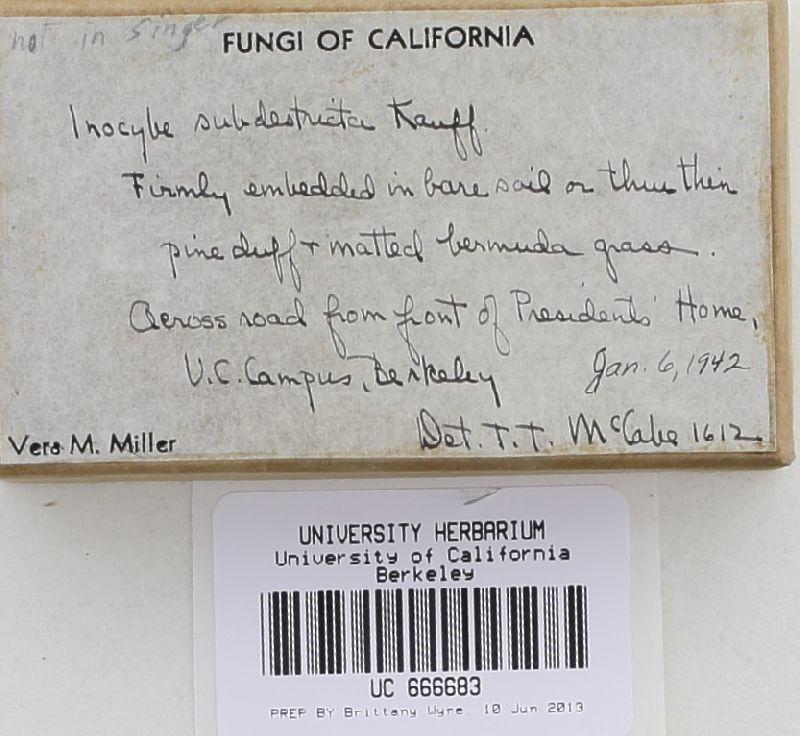 not in Singer
FUNGI OF CALIFORNIA
Inocybe subdestricta Kauff.
Firmly embedded in bare soil or thru thin
pine duff + matted bermuda grass.
Across road from front of Presidents' Home,
U.C. Campus, Berkeley Jan. 6, 1942
Vera M. Miller Det. T.T. McCabe 1612.
UNIVERSITY HERBARIUM
University of California
Berkeley
UC 666683
PREP BY Brittany Wyre, 10 Jun 2013